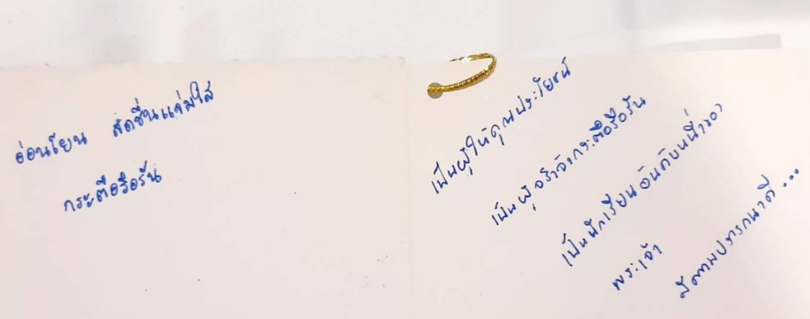 อ่อนโยน สดชื่นแจ่มใส
กระตือรือร้น
เป็นผู้ให้คุณประโยชน์
เป็นผู้อร่าจากระตือรือร้น
เป็นนักเรียนอันดับหนึ่งของ
พระเจ้า
มีความปรารถนาดี...